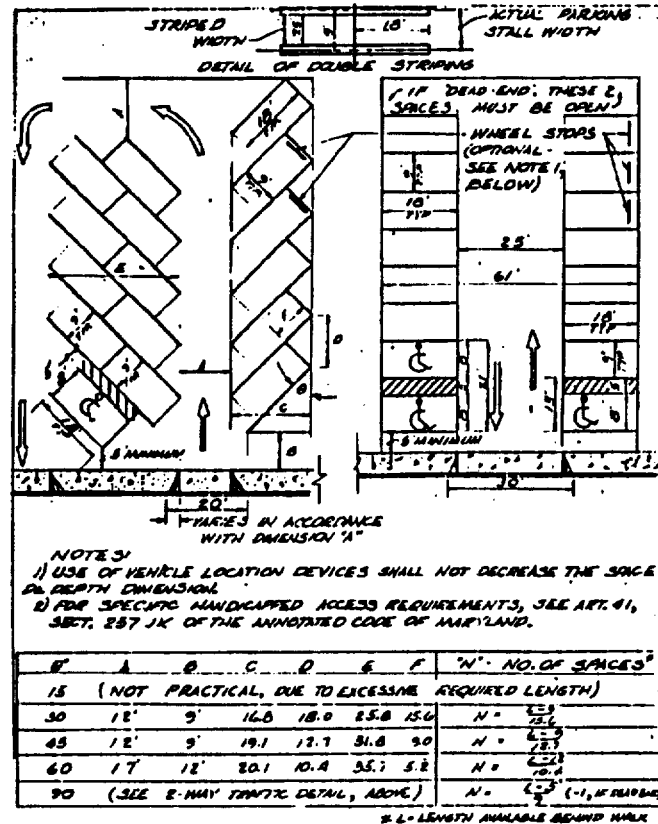 STRIPED WIDTH
18'
ACTUAL PARKING STALL WIDTH
DETAIL OF DOUBLE STRIPING
IF "DEAD-END", THESE 2, SPACES MUST BE OPEN
WHEEL STOPS
(OPTIONAL -
SEE NOTE 1,
BELOW)
18'
TYP
25'
61'
18'
TYP
E
A
D
C
B
5' MINIMUM
5' MINIMUM
20'
30'
VARIES IN ACCORDANCE
WITH DIMENSION "A"
NOTES:
1) USE OF VEHICLE LOCATION DEVICES SHALL NOT DECREASE THE SPACE
DEPTH DIMENSION.
2) FOR SPECIFIC HANDICAPPED ACCESS REQUIREMENTS, SEE ART. 41,
SECT. 257 JK OF THE ANNOTATED CODE OF MARYLAND.
θ° A B C D E F "N" - NO. OF SPACES*
15 (NOT PRACTICAL, DUE TO EXCESSIVE REQUIRED LENGTH)
30 12' 9' 16.8 18.0 25.8 15.6 N =
45 12' 9' 19.1 12.7 31.8 9.0 N =
60 17' 12' 20.1 10.4 35.7 5.2 N =
90 (SEE 2-WAY TRAFFIC DETAIL, ABOVE) N =
* L = LENGTH AVAILABLE BEHIND WALK